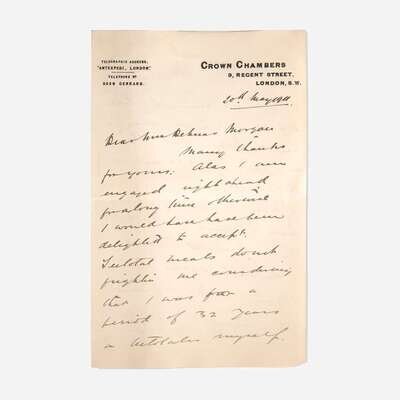 TELEGRAPHIC ADDRESS,
"ANTEXPEDI, LONDON"
TELEPHONE No
GERRARD.
CROWN CHAMBERS
9, REGENT STREET,
LONDON, S.W.
20th May 1911.
Dear Mrs Morgan
Many thanks
for yours: Alas I am
engaged right ahead
for a long time otherwise
I would have been
delighted to accept.
Teetotal meals don't
frighten me considering
that I was for a
period of 32 years
a myself.